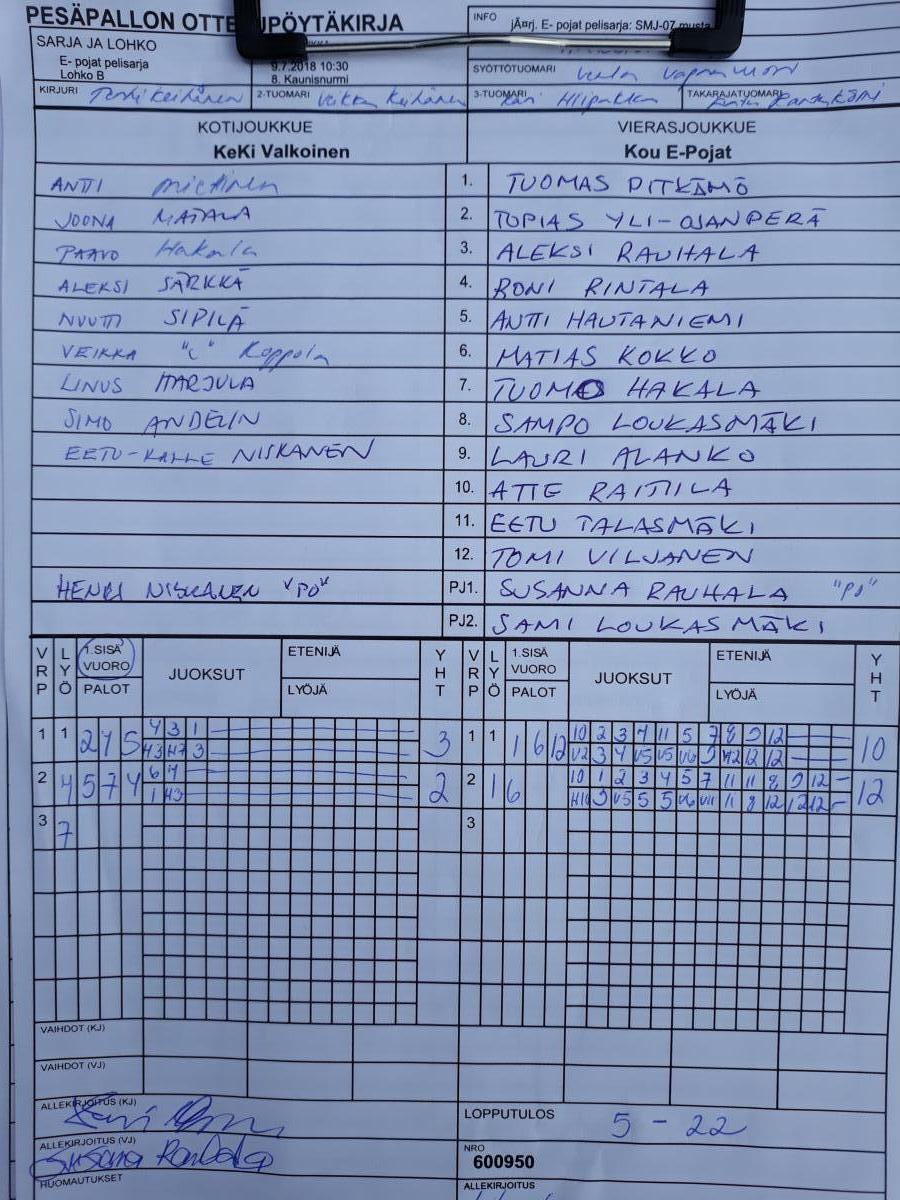 PESÄPALLON OTTE UPÖYTÄKIRJA
INFO jÄ¤rj. E- pojat pelisarja: SMJ-07 musta
SARJA JA LOHKO
E- pojat pelisarja
Lohko B
9.7.2018 10:30
8. Kaunisnurmi
SYÖTTÖTUOMARI
KIRJURI
2-TUOMARI Veikka Keihänen
3-TUOMARI
TAKARAJATUOMARI
KOTIJOUKKUE VIERASJOUKKUE
KeKi Valkoinen Kou E-Pojat
ANTTI Miettinen 1. TUOMAS PITKÄMÖ
JOONA MATALA 2. TOPIAS YLI-OJANPERÄ
PAAVO Hakala 3. ALEKSI RAUHALA
ALEKSI SÄRKKÄ 4. RONI RINTALA
NUUTTI SIPILÄ 5. ANTTI HAUTANIEMI
VEIKKA "C" Koppola 6. MATIAS KOKKO
LINUS HARJULA 7. TUOMO HAKALA
SIMO ANDELIN 8. SAMPO LOUKASMÄKI
EETU-KALLE NISKANEN 9. LAURI ALANKO
10. ATTE RAITTILA
11. EETU TALASMÄKI
12. TOMI VILJANEN
HENRI NISKANEN "PO" PJ1. SUSANNA RAUHALA "PJ"
PJ2. SAMI LOUKASMÄKI
VRP LYÖ 1.SISÄ VUORO PALOT JUOKSUT ETENIJÄ LYÖJÄ YHT VRP LYÖ 1.SISÄ VUORO PALOT JUOKSUT ETENIJÄ LYÖJÄ YHT
4 3 1 10 2 3 4 11 5 7 8 9 12
1 1 2 4 5 H3 H7 3 3 1 1 1 6 12 V2 3 4 V5 V5 V6 9 H2 12 12 10
6 4 10 1 2 3 4 5 7 11 11 8 9 12 -
2 4 5 7 4 1 H3 2 2 1 6 H10 9 V5 5 5 V6 V11 11 8 12 12 12 - 12
3 7 3
VAIHDOT (KJ)
VAIHDOT (VJ)
ALLEKIRJOITUS (KJ)
LOPPUTULOS 5 - 22
ALLEKIRJOITUS (VJ)
NRO
600950
HUOMAUTUKSET
ALLEKIRJOITUS